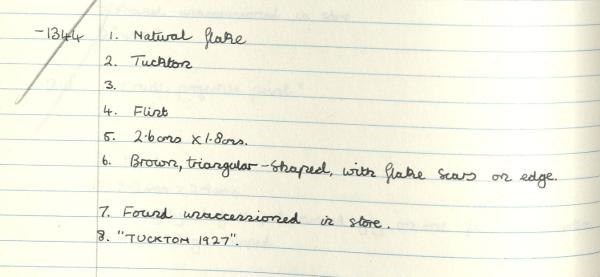 -1344 1. Natural flake
2. Tuckton
3.
4. Flint
5. 2.6cms x 1.8cms.
6. Brown, triangular-shaped, with flake scars on edge.
7. Found unaccessioned in store.
8. "TUCKTON 1927".